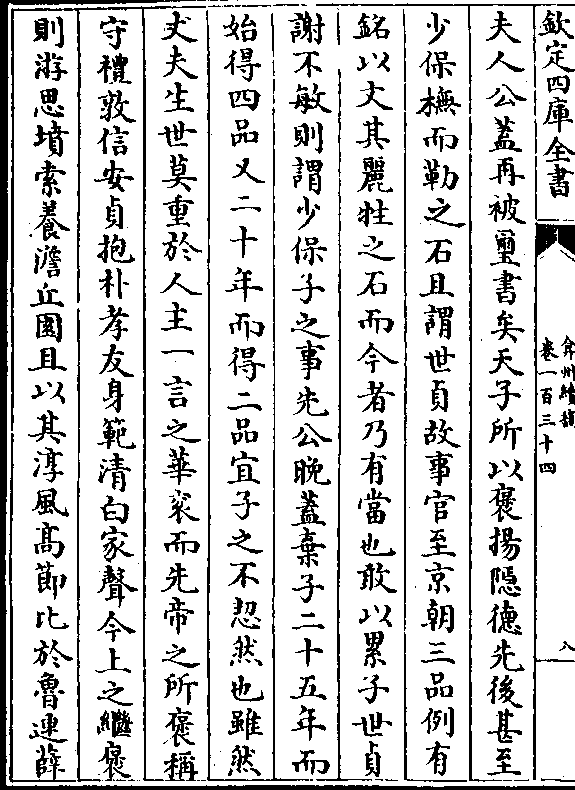 欽定四庫全書
弇州續稿
卷一百三十四
八
夫人公蓋再被璽書矣天子所以褒揚隱德先後甚至
少保橅而勒之石且謂世貞故事官至京朝三品例有
銘以文其麗牲之石而今者乃有當也敢以累子世貞
謝不敏則謂少保子之事先公晚蓋棄子二十五年而
始得四品又二十年而得二品宜子之不恝然也雖然
丈夫生世莫重於人主一言之華衮而先帝之所褒稱
守禮敦信安貞抱朴孝友身範清白家聲今上之繼褒
則游思墳索養澹丘園且以其淳風高節比於魯連薛